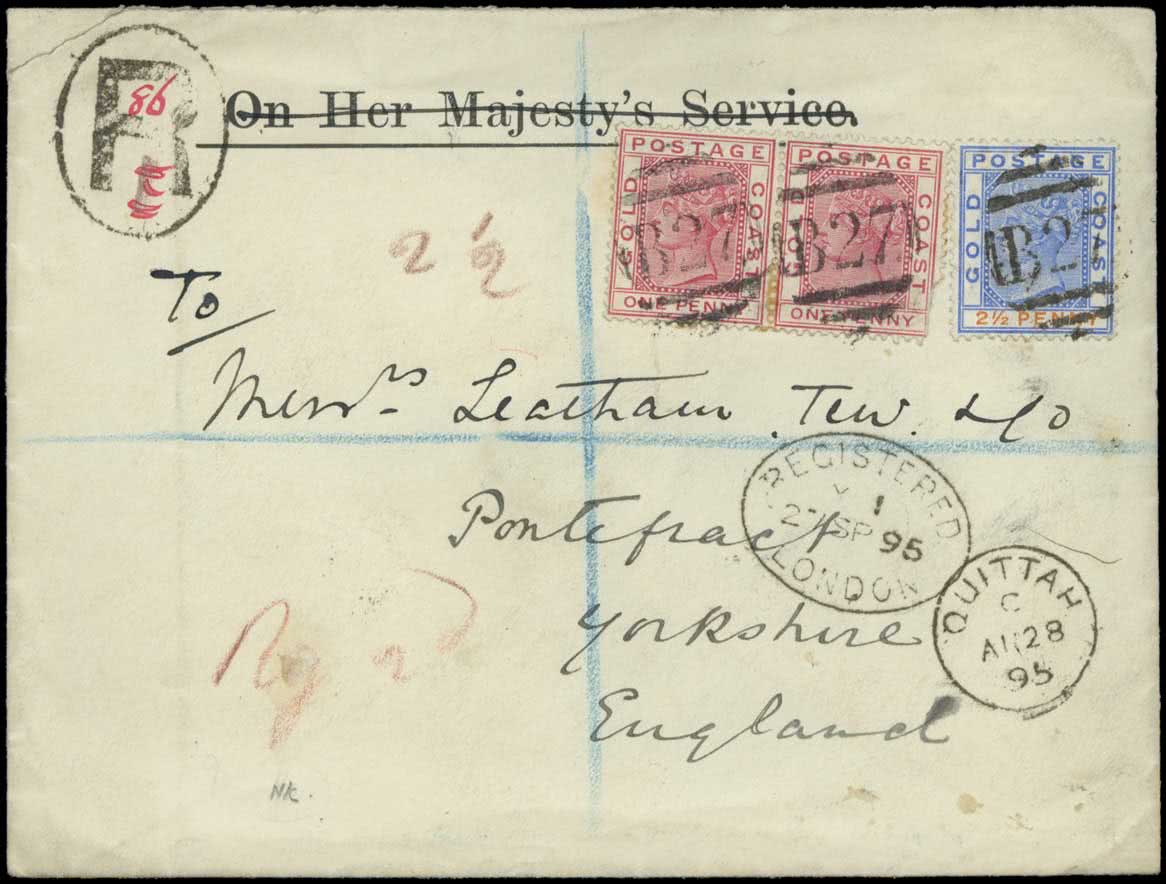 R
86
On Her Majesty's Service.
POSTAGE
GOLD COAST
ONE PENNY
B27
POSTAGE
GOLD COAST
ONE PENNY
B27
POSTAGE
GOLD COAST
2½ PENNY
B27
2½
To
Messrs Leatham, Tew & Co
REGISTERED
1
27 SP 95
LONDON
Pontefract
QUITTAH
C
AU 28
95
Yorkshire
Reg 2d
England
NK.